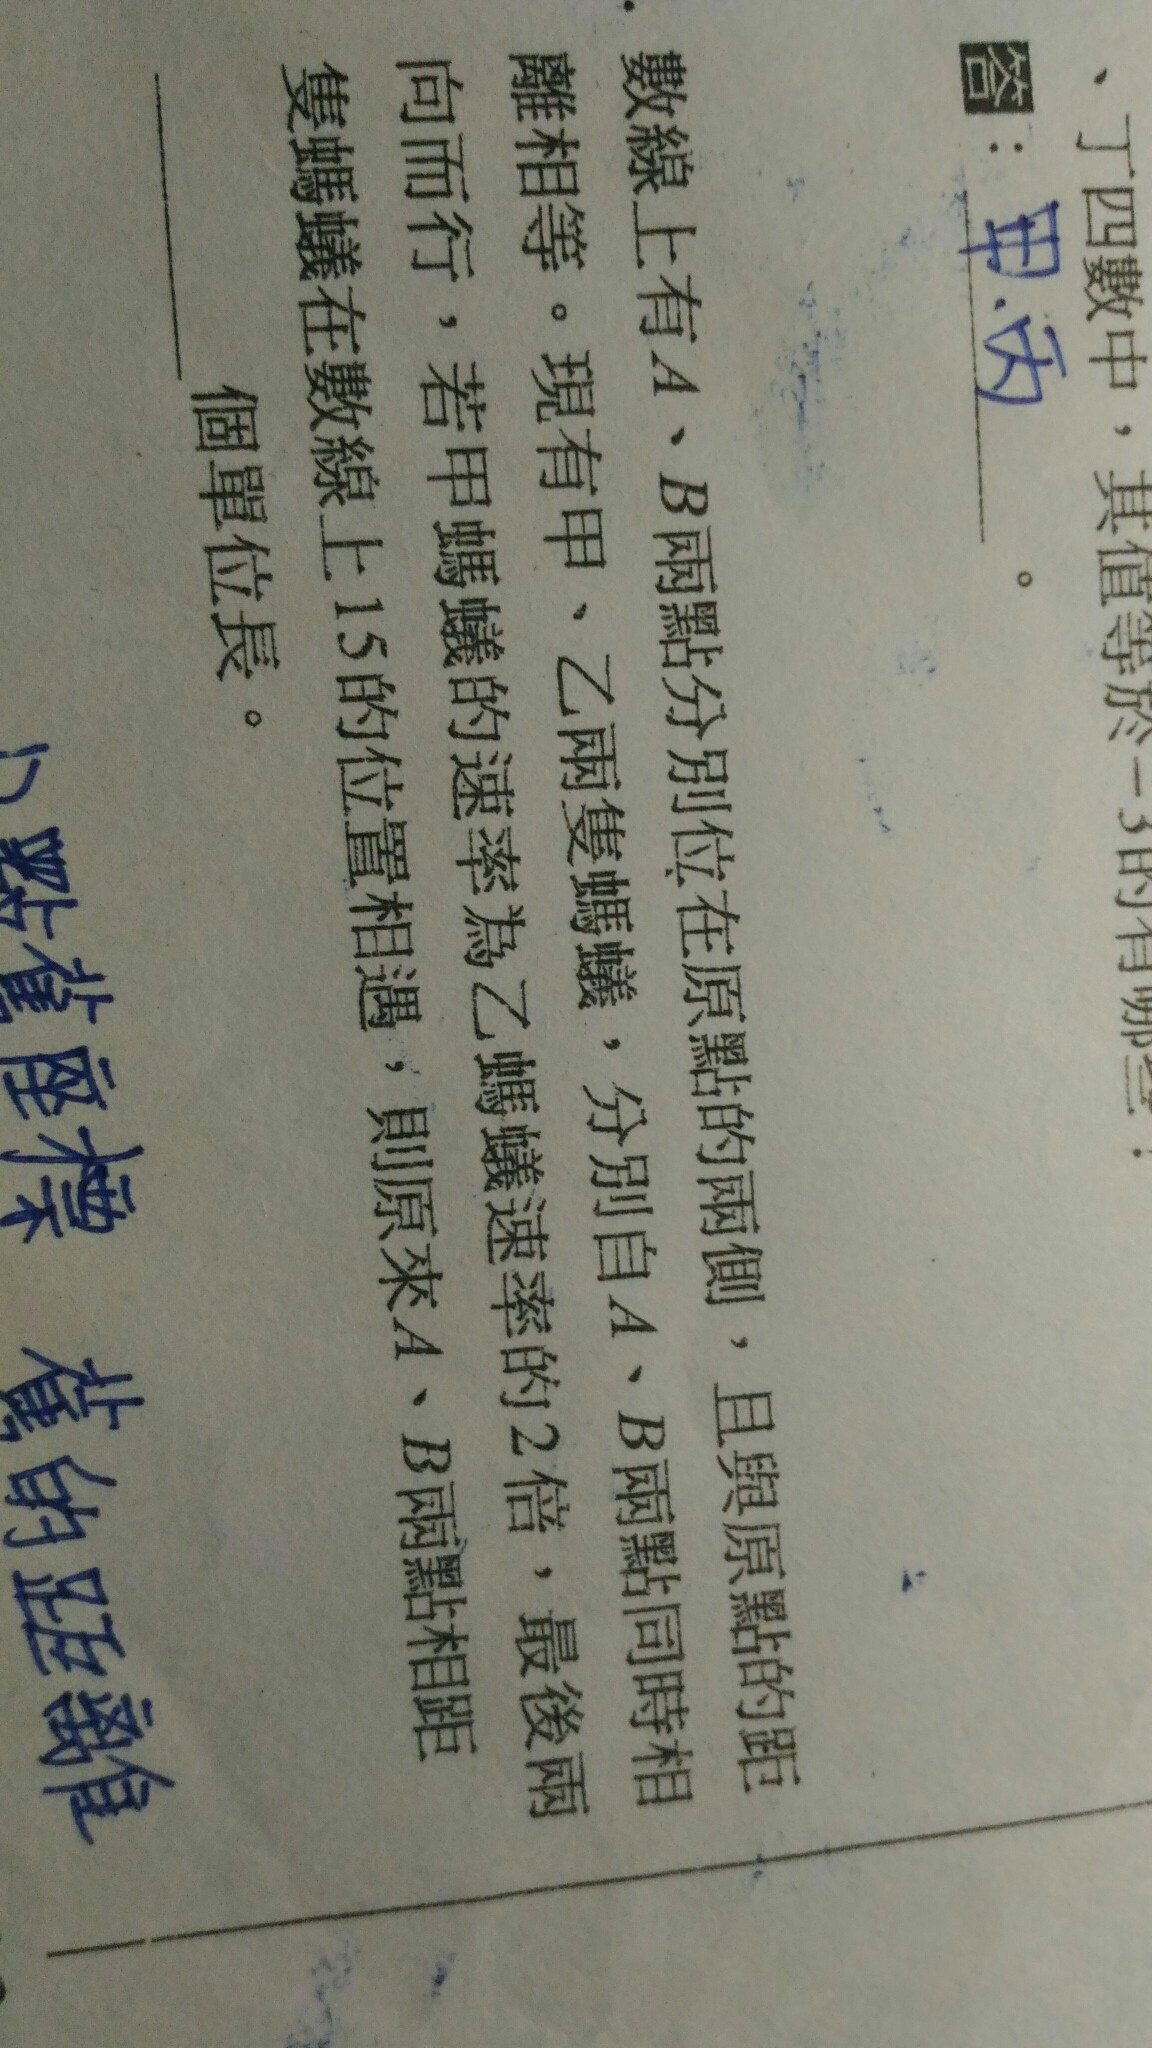 、丁四數中，其值等於-3的有哪些：
答：甲.丙。
數線上有A、B兩點分別位在原點的兩側，且與原點的距
離相等。現有甲、乙兩隻螞蟻，分別自A、B兩點同時相
向而行，若甲螞蟻的速率為乙螞蟻速率的2倍，最後兩
隻螞蟻在數線上15的位置相遇，則原來A、B兩點相距
個單位長。
舊座標 舊的距離